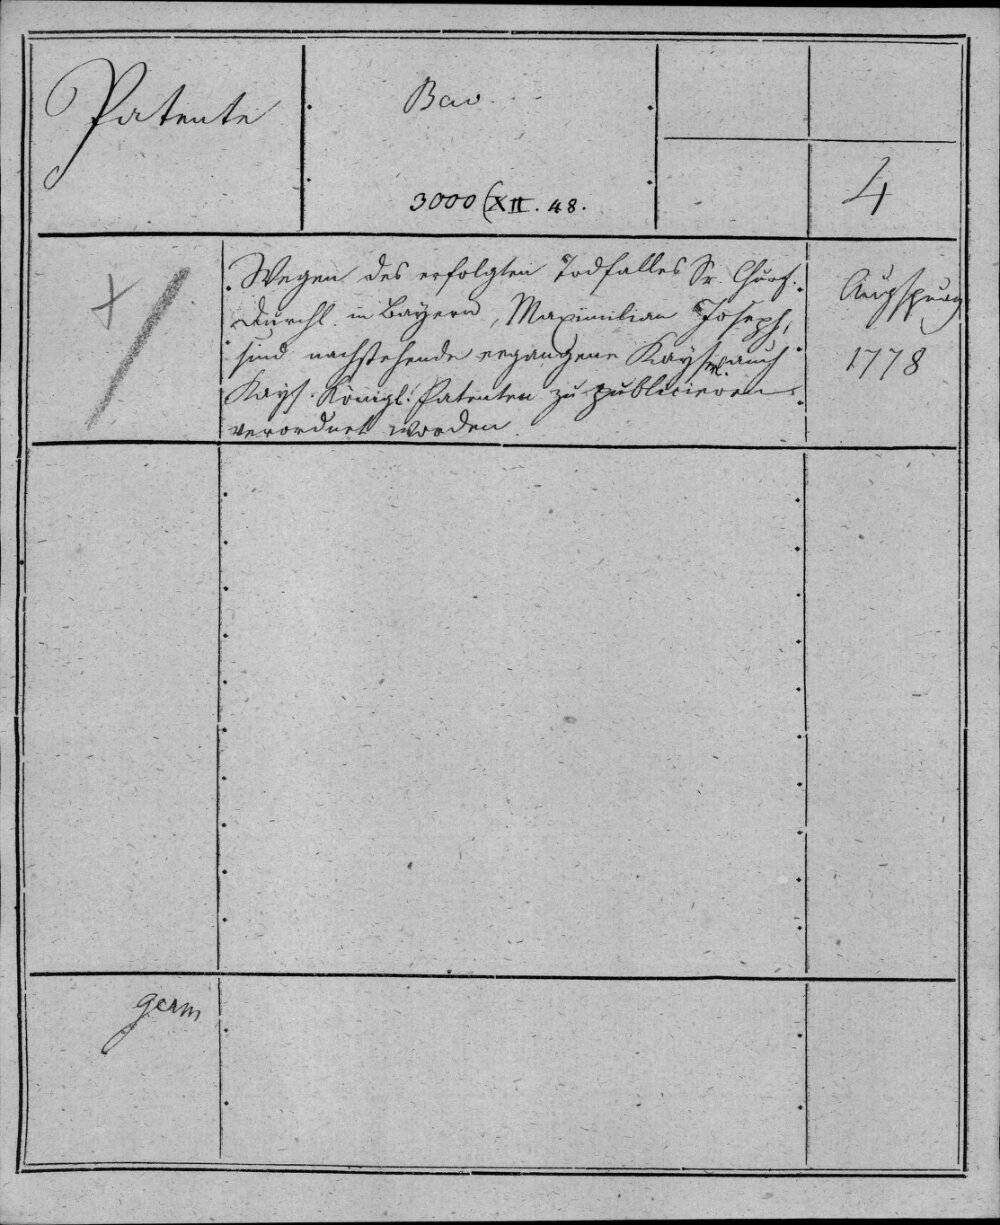 Patente
Bav.
3000 (XII. 48.
4
Wegen des erfolgten Todfalles Sr. Churf.
Durchl. in Bayern, Maximilian Joseph,
sind nachstehende ergangene Kayserl. auch
Kays. Königl. Patenten zu publicieren
verordnet worden.
Augspurg
1778
germ